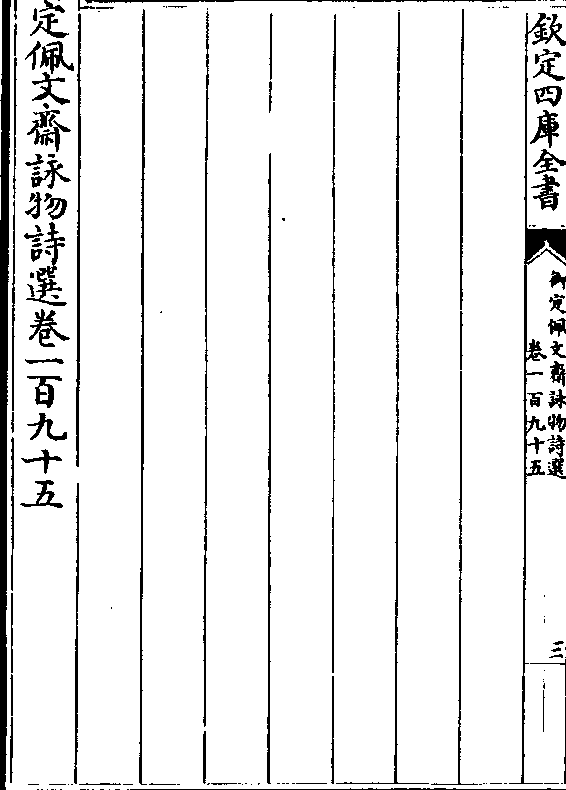 欽定四庫全書
御定佩文齋詠物詩選
卷一百九十五
三
定佩文齋詠物詩選卷一百九十五